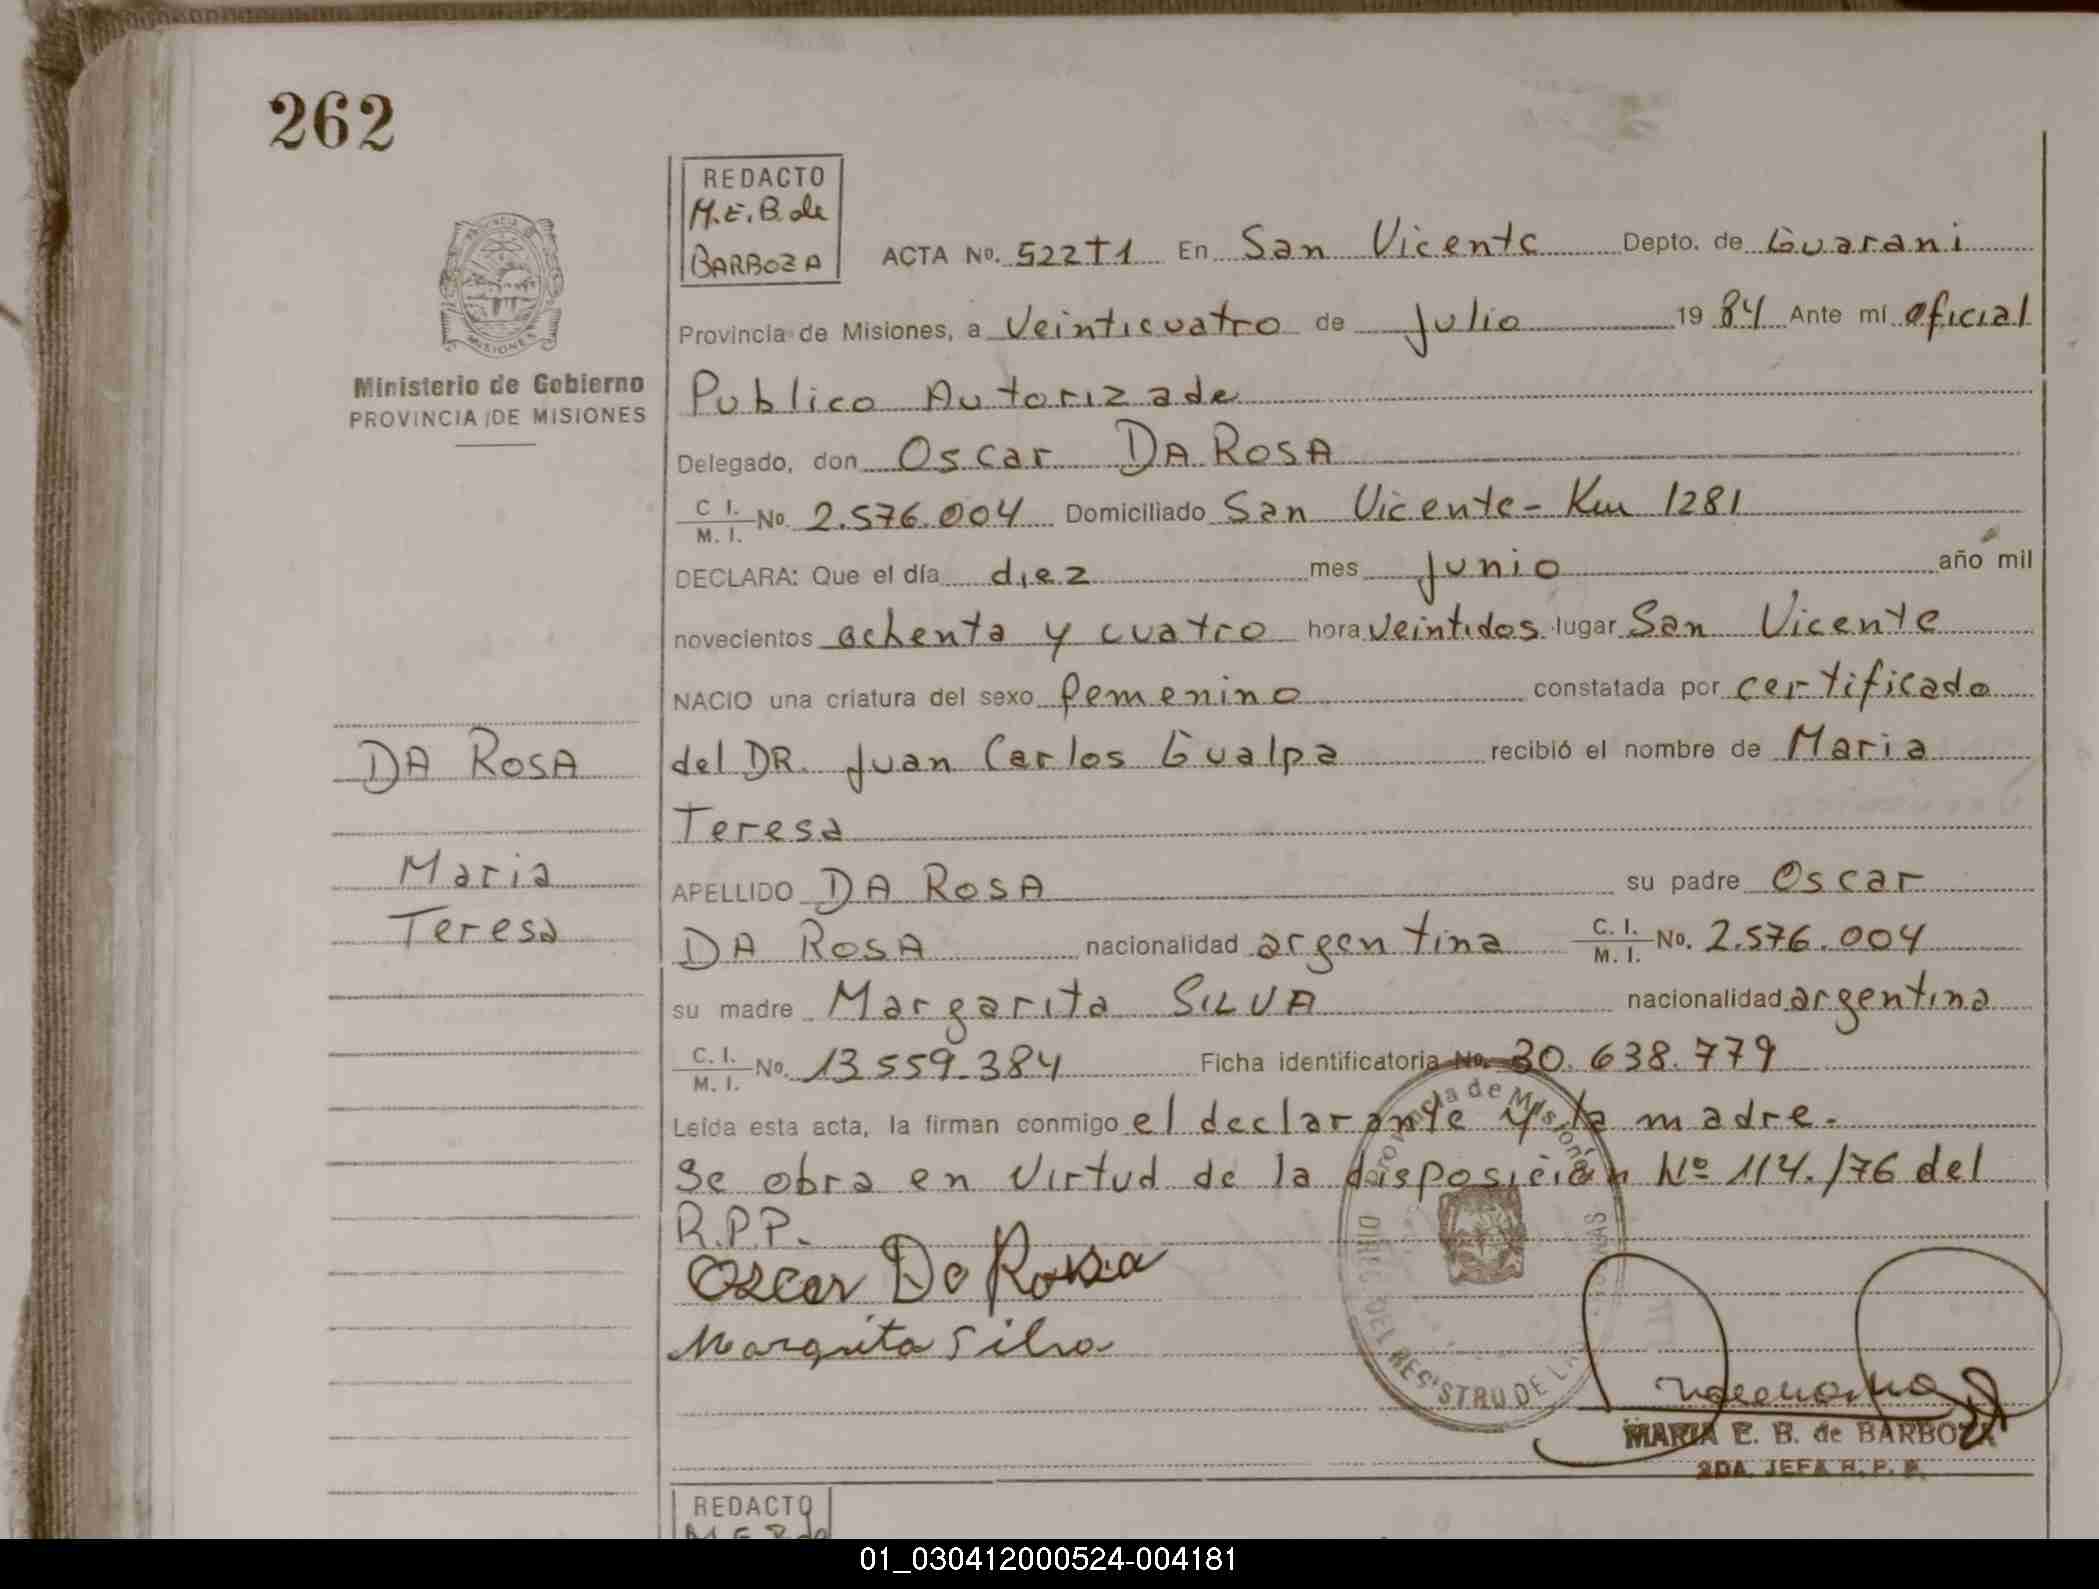 262
REDACTO
M.E.B. de
BARBOZA
PROVINCIA DE
MISIONES
Ministerio de Gobierno
PROVINCIA DE MISIONES
ACTA No. 522T1 En San Vicente Depto. de Guarani
Provincia de Misiones, a Veinticuatro de Julio 19 84 Ante mí oficial
Publico Autorizade
Delegado, don Oscar DA ROSA
C I. / M. I. No. 2.576.004 Domiciliado San Vicente - Km 1281
DECLARA: Que el día diez mes Junio año mil
novecientos ochenta y cuatro hora veintidos lugar San Vicente
NACIO una criatura del sexo femenino constatada por certificado
del DR. Juan Carlos Gualpa recibió el nombre de Maria
Teresa
APELLIDO DA ROSA su padre Oscar
DA ROSA nacionalidad argentina C. I. / M. I. No. 2.576.004
su madre Margarita SILVA nacionalidad argentina
C. I. / M. I. No. 13.559.384 Ficha identificatoria No. 30.638.779
Leída esta acta, la firman conmigo el declarante y la madre.
Se obra en virtud de la disposición Nº 114./76 del
R.P.P.
Oscar Da Rosa
Margarita Silva
DA ROSA
Maria
Teresa
Provincia de Misiones
DEL REGISTRO DE LA
MARIA E. B. de BARBOZA
2DA. JEFA R. P. P.
REDACTO
M.E.B de
01_030412000524-004181